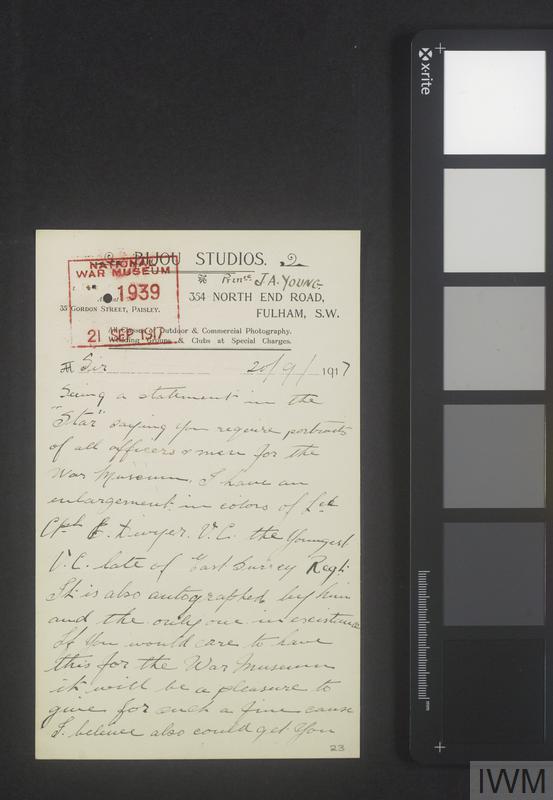 BIJOU STUDIOS.
NATIONAL
WAR MUSEUM
1939
21 SEP 1917
J. A. YOUNG
354 NORTH END ROAD,
FULHAM, S.W.
35 GORDON STREET, PAISLEY.
All Classes of Outdoor & Commercial Photography.
Wedding Groups & Clubs at Special Charges.
Sir 20/9/1917
Seeing a statement in the
"Star" saying you require portraits
of all officers & men for the
War Museum. I have an
enlargement in colors of
E. Dwyer. V.C. the Youngest
V.C. late of East Surrey Regt.
It is also autographed by him
and the only one in existence
If you would care to have
this for the War Museum
it will be a pleasure to
give for such a fine cause
I believe also could get you
23
x-rite
mm
IWM